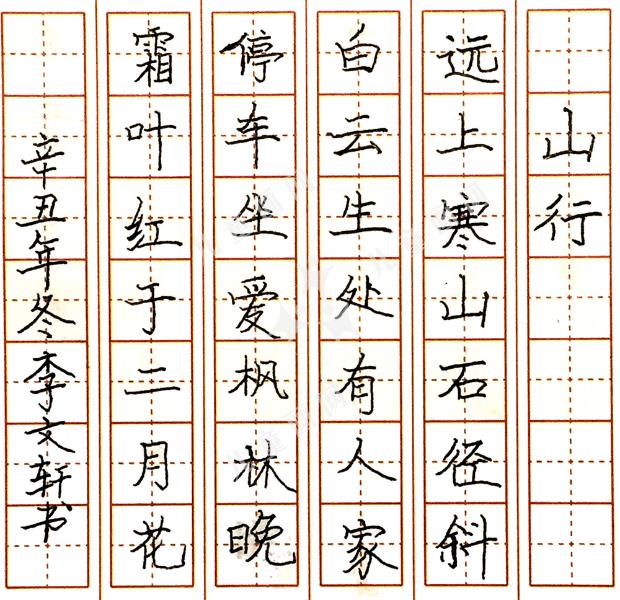 山行
远上寒山石径斜
白云生处有人家
停车坐爱枫林晚
霜叶红于二月花
辛丑年冬李文轩书